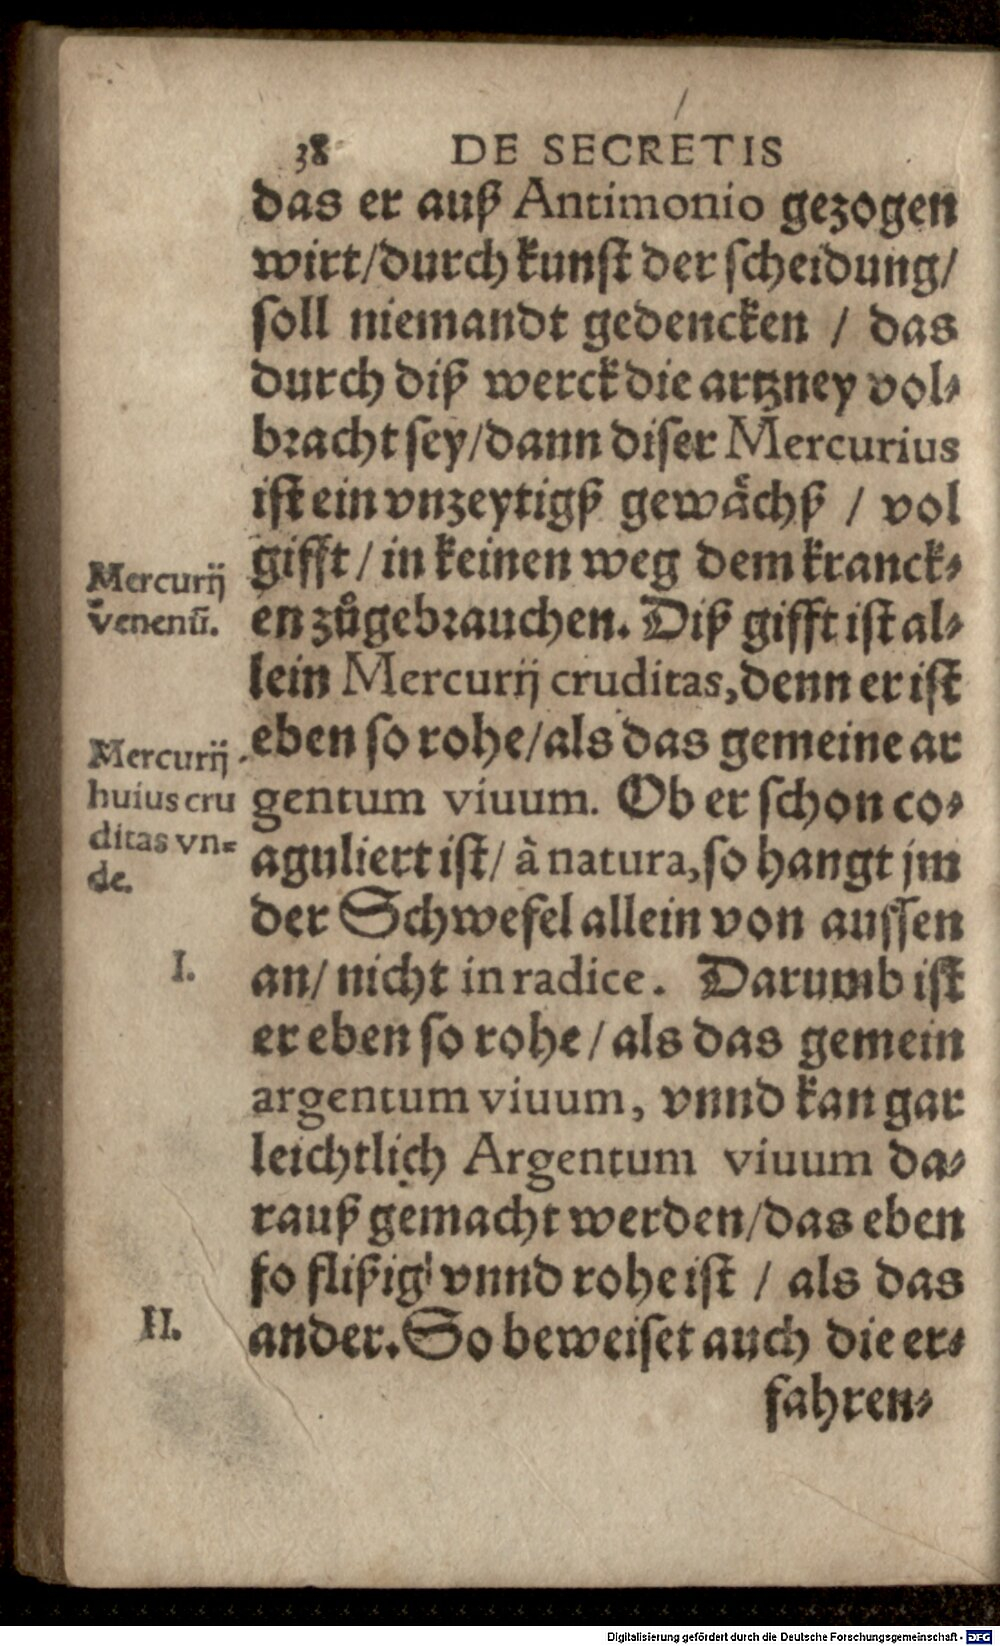 38 DE SECRETIS
das er auß Antimonio gezogen
wirt/durch kunst der scheidung/
soll niemandt gedencken / das
durch diß werck die artzney vol⸗
bracht sey/dann diser Mercurius
ist ein vnzeytigß gewaͤchß / vol
gifft / in keinen weg dem kranck⸗
en zůgebrauchen. Diß gifft ist al⸗
lein Mercurij cruditas, denn er ist
eben so rohe/als das gemeine ar
gentum viuum. Ob er schon co⸗
aguliert ist/ à natura, so hangt jm
der Schwefel allein von aussen
an/ nicht in radice. Darumb ist
er eben so rohe / als das gemein
argentum viuum, vnnd kan gar
leichtlich Argentum viuum da⸗
rauß gemacht werden/das eben
so flißig vnnd rohe ist / als das
ander. So beweiset auch die er⸗
fahren⸗
Mercurij
venenū.
Mercurij
huius cru
ditas vn⸗
de.
I.
II.
Digitalisierung gefördert durch die Deutsche Forschungsgemeinschaft - DFG